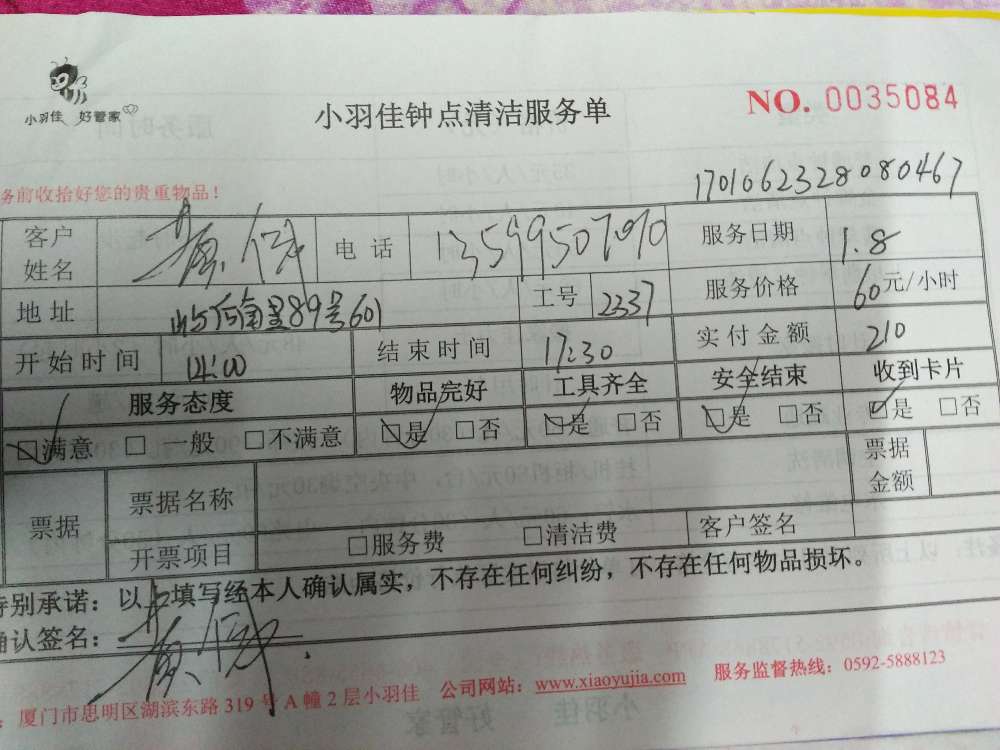 小羽佳 好管家
小羽佳钟点清洁服务单
NO. 0035084
务前收拾好您的贵重物品！
1701062328080467
客户姓名 电话 服务日期 1.8
地址 89号601 工号 2337 服务价格 60元/小时
开始时间 14:00 结束时间 17:30 实付金额 210
服务态度 物品完好 工具齐全 安全结束 收到卡片
☑满意 □一般 □不满意 ☑是 □否 ☑是 □否 ☑是 □否 ☑是 □否
票据 票据名称 票据金额
开票项目 □服务费 □清洁费 客户签名
特别承诺：以上填写经本人确认属实，不存在任何纠纷，不存在任何物品损坏。
确认签名：
：厦门市思明区湖滨东路 319 号 A 幢 2 层小羽佳 公司网站：www.xiaoyujia.com 服务监督热线：0592-5888123